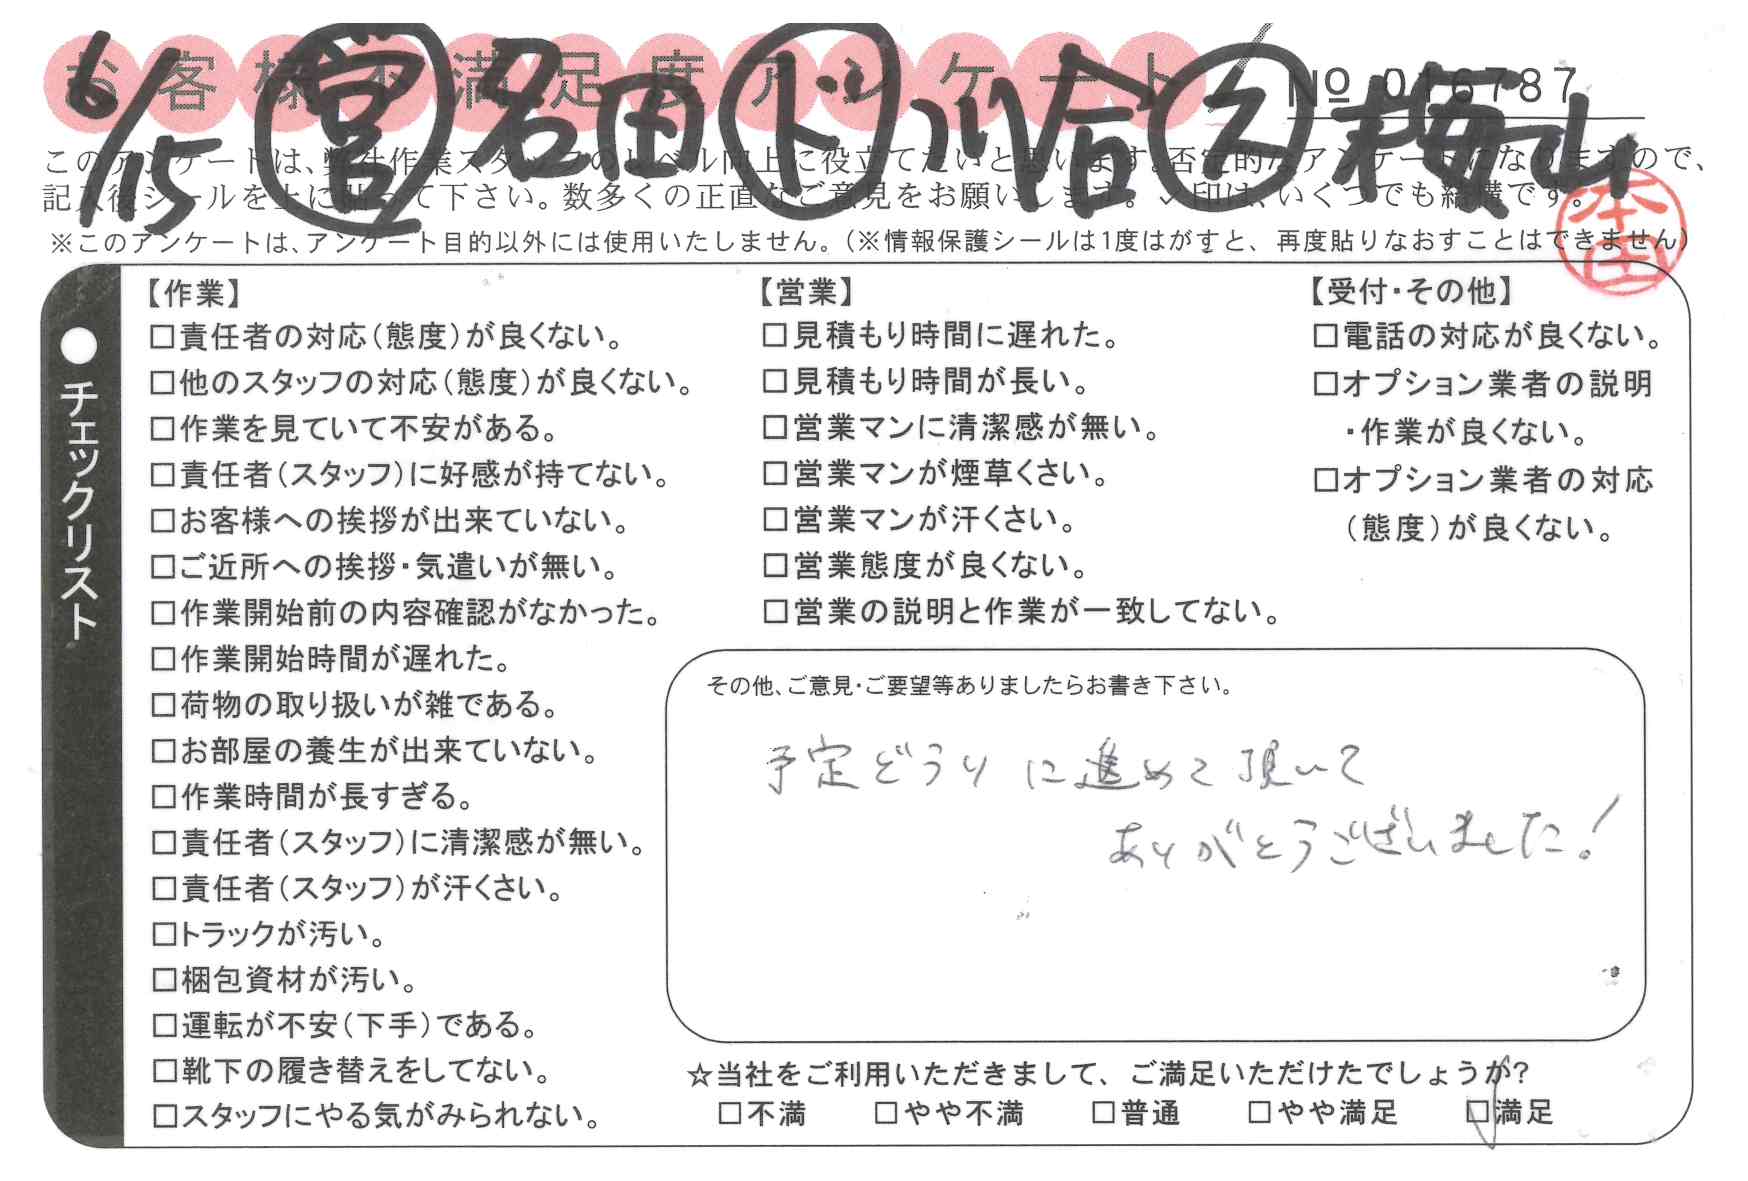 お客様不満足度アンケート
No 016787
6/15 営 名田 ド 川合 ス 梅山
このアンケートは、弊社作業スタッフのレベル向上に役立てたいと思います。否定的なアンケートになりますので、
記入後シールを上に貼って下さい。数多くの正直なご意見をお願いします。✓印は、いくつでも結構です。
※このアンケートは、アンケート目的以外には使用いたしません。(※情報保護シールは1度はがすと、再度貼りなおすことはできません)
本田
●チェックリスト
【作業】
□責任者の対応(態度)が良くない。
□他のスタッフの対応(態度)が良くない。
□作業を見ていて不安がある。
□責任者(スタッフ)に好感が持てない。
□お客様への挨拶が出来ていない。
□ご近所への挨拶・気遣いが無い。
□作業開始前の内容確認がなかった。
□作業開始時間が遅れた。
□荷物の取り扱いが雑である。
□お部屋の養生が出来ていない。
□作業時間が長すぎる。
□責任者(スタッフ)に清潔感が無い。
□責任者(スタッフ)が汗くさい。
□トラックが汚い。
□梱包資材が汚い。
□運転が不安(下手)である。
□靴下の履き替えをしてない。
□スタッフにやる気がみられない。
【営業】
□見積もり時間に遅れた。
□見積もり時間が長い。
□営業マンに清潔感が無い。
□営業マンが煙草くさい。
□営業マンが汗くさい。
□営業態度が良くない。
□営業の説明と作業が一致してない。
【受付・その他】
□電話の対応が良くない。
□オプション業者の説明
・作業が良くない。
□オプション業者の対応
(態度)が良くない。
その他、ご意見・ご要望等ありましたらお書き下さい。
予定どうりに進めて頂いて
ありがとうございました!
☆当社をご利用いただきまして、ご満足いただけたでしょうか?
□不満 □やや不満 □普通 □やや満足 ☑満足